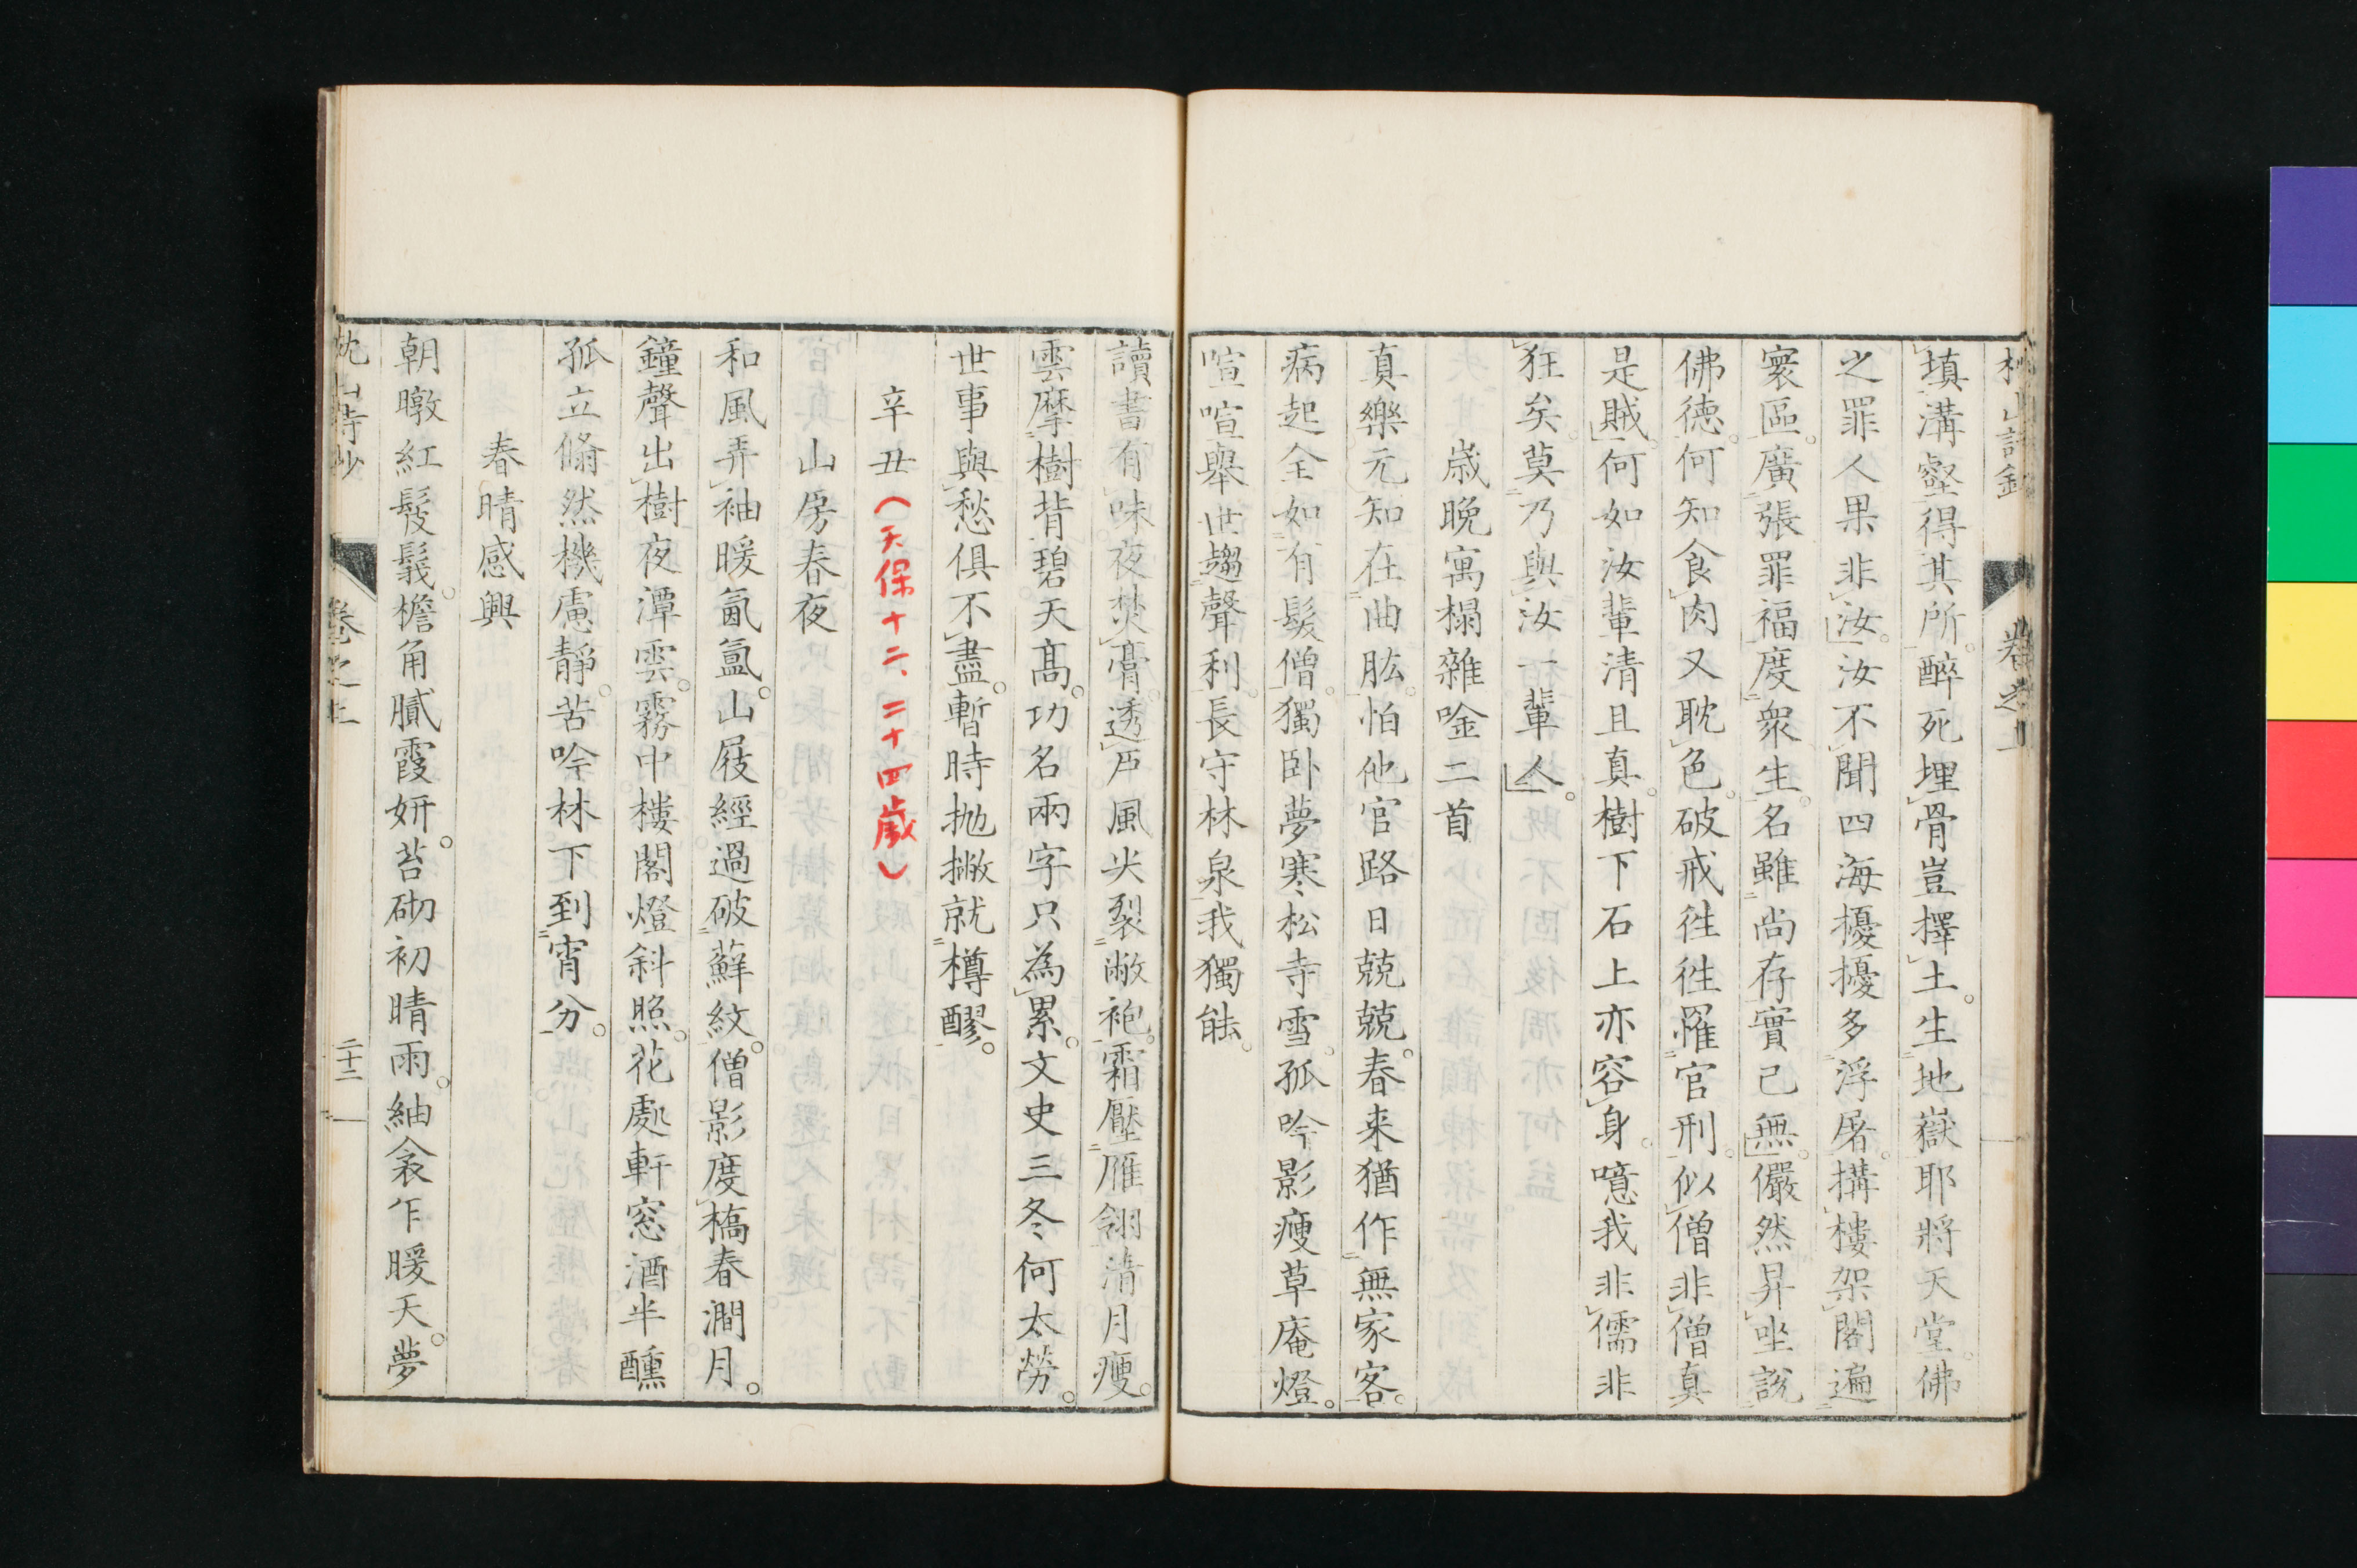 填溝壑得其所醉死埋骨豈擇土生地嶽耶將天堂佛
之罪人果非汝汝不聞四海擾擾多浮屠搆樓架閣遍
寰區廣張罪福度衆生名雖尚存實已無儼然昇坐說
佛徳何知食肉又耽色破戒徃徃罹官刑似僧非僧真
是賊何如汝輩清且真樹下石上亦容身噫我非儒非
狂矣莫乃與汝一輩人
歳晩寓榻雜唫二首
真樂元知在曲肱怕他官路日兢兢春来猶作無家客
病起全如有髮僧獨卧夢寒松寺雪孤吟影瘦草庵燈
喧喧舉世趨聲利長守林泉我獨能
讀書有味夜焚膏透戸風尖裂敝袍霜壓雁翎清月瘦
雲摩樹背碧天髙功名兩字只為累文史三冬何太勞
世事與愁俱不盡暫時抛撇就樽醪
辛丑（天保十二、二十四歳）
山房春夜
和風弄袖暖氤氳山屐經過破蘚紋僧影度橋春澗月
鐘聲出樹夜潭雲霧中樓閣燈斜照花處軒窓酒半醺
孤立翛然機慮靜苦吟林下到宵分
春晴感興
朝暾紅髲鬟檐角膩霞妍苔砌初晴雨紬衾乍暖天夢
枕山詩鈔
卷之上
二十二